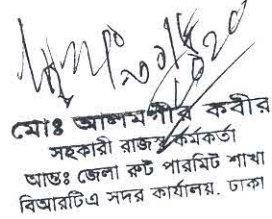 মোঃ আলমগীর কবীর
সহকারী রাজস্ব কর্মকর্তা
আন্তঃ জেলা রুট পারমিট শাখা
বিআরটিএ সদর কার্যালয়. ঢাকা